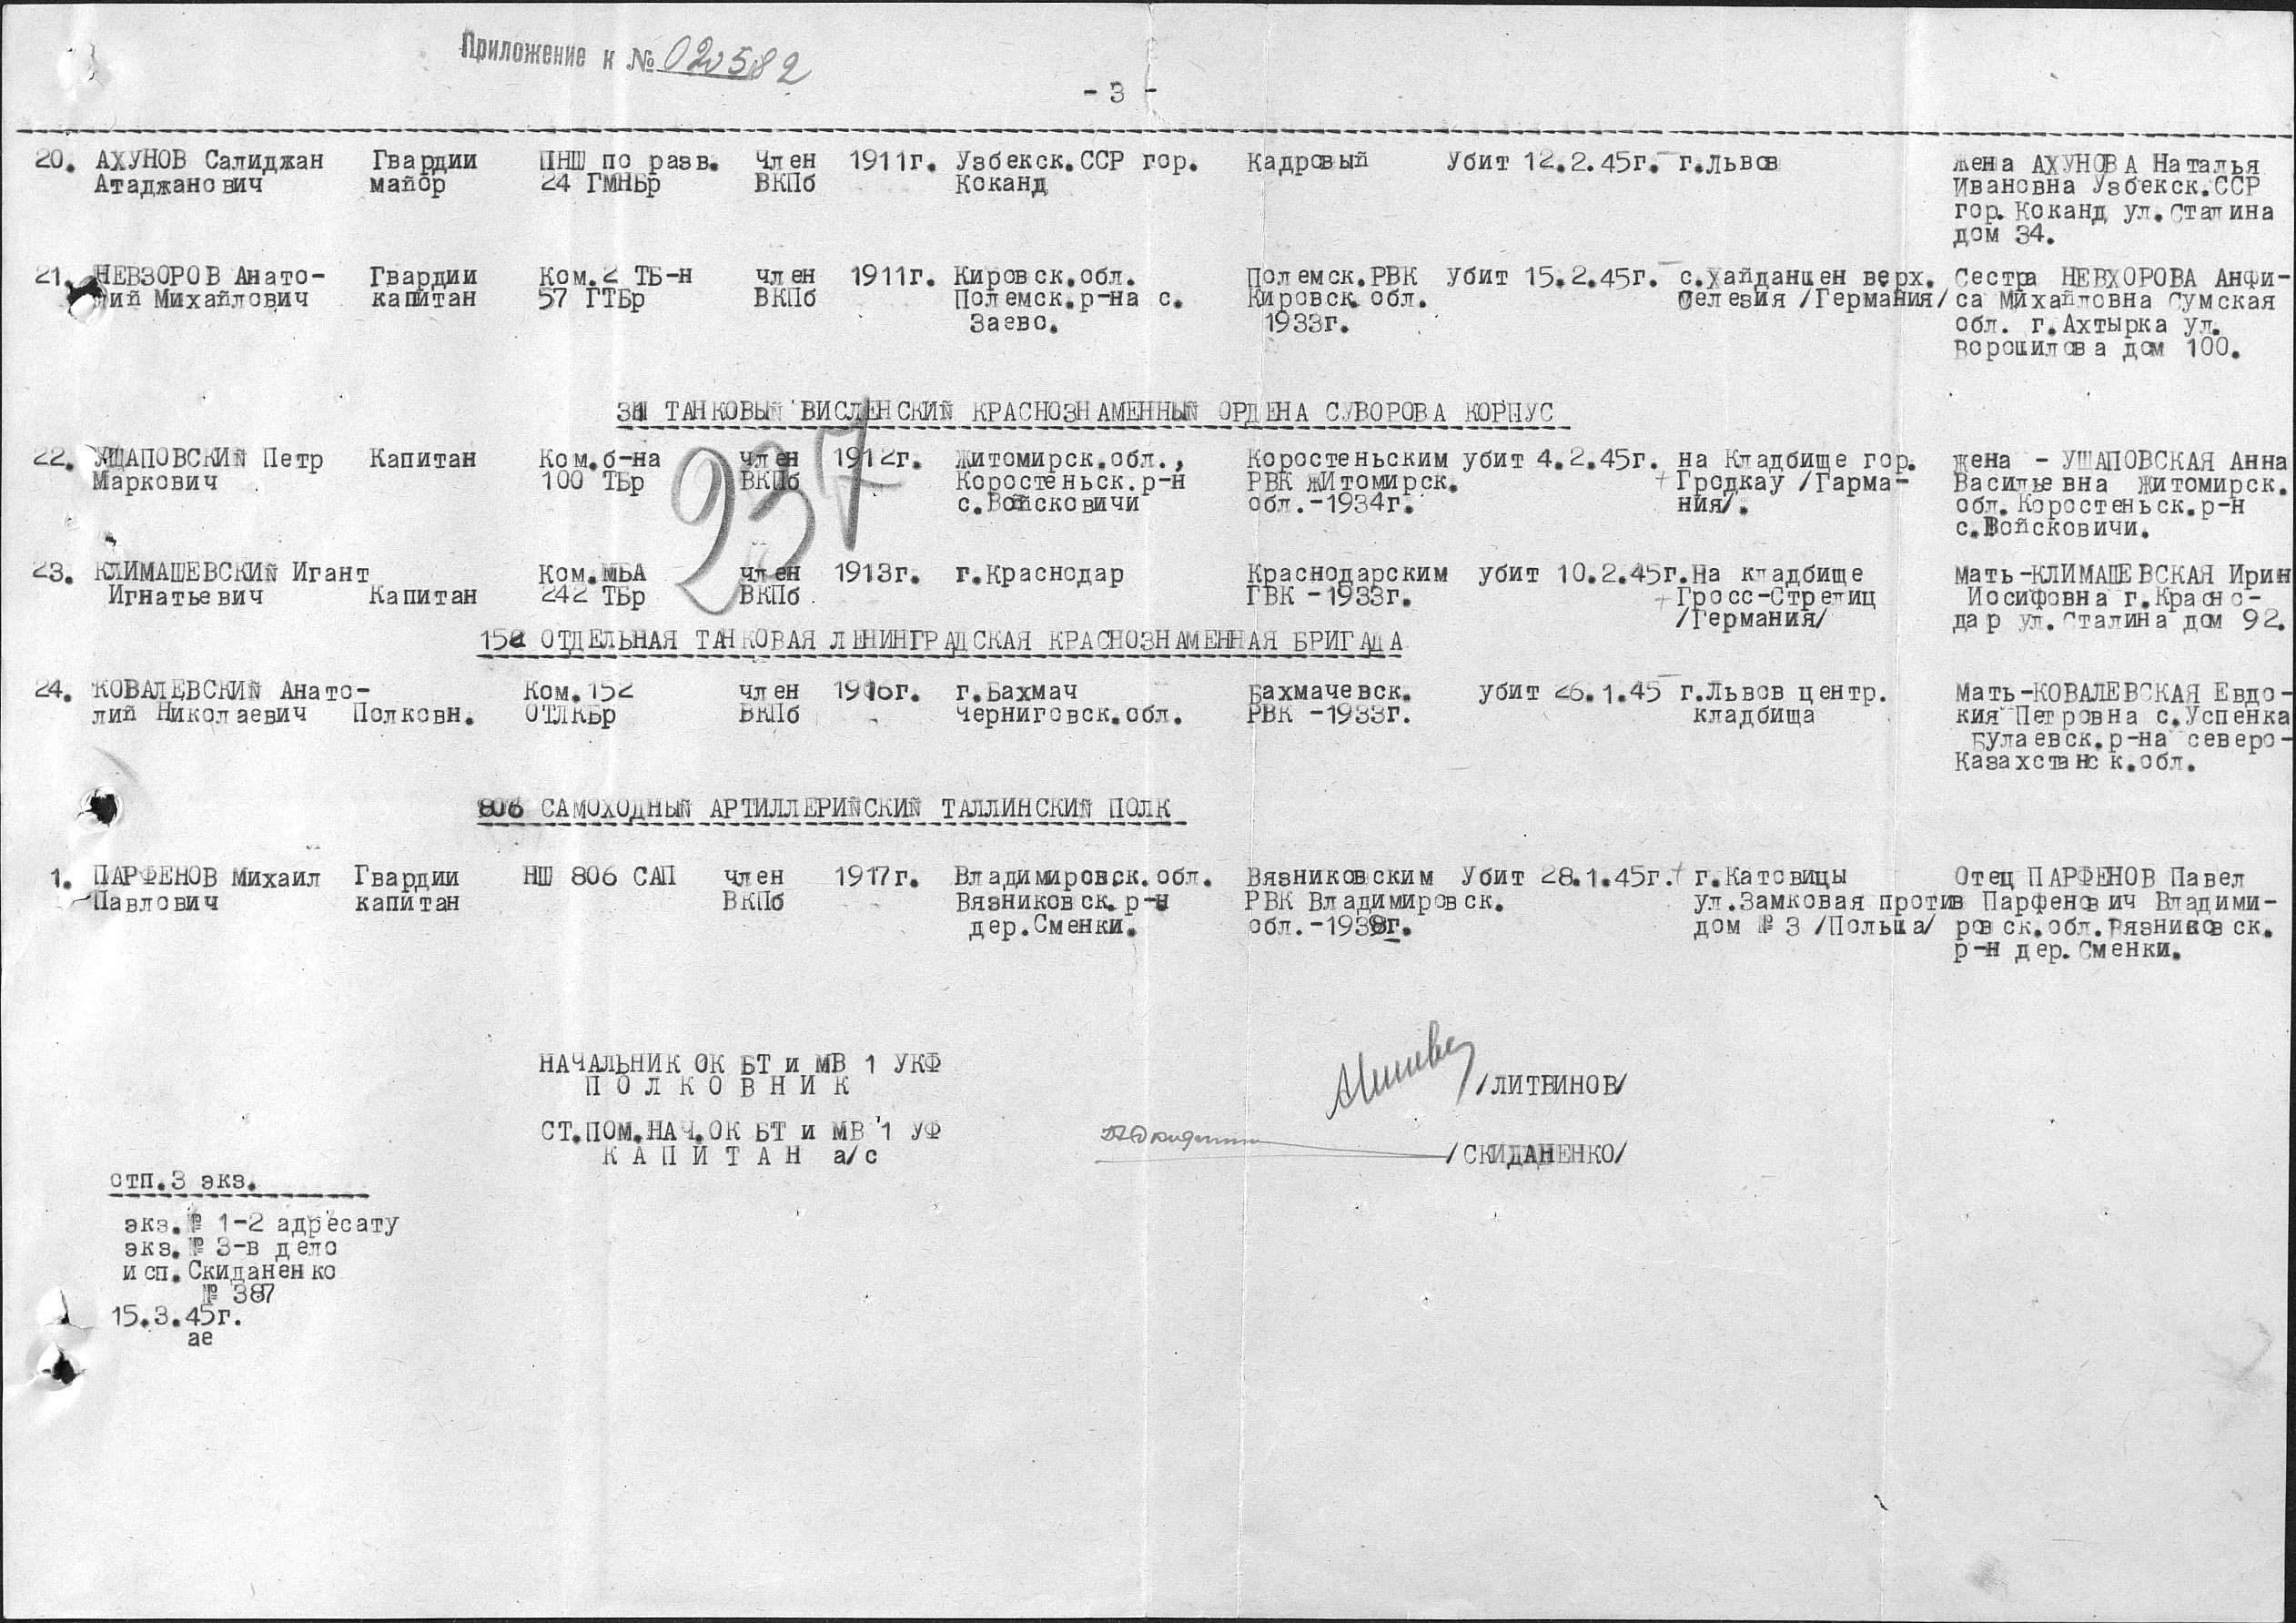 Приложение к № 020582
- 3 -
20. АХУНОВ Салиджан Гвардии ПНШ по разв. Член 1911г. Узбекск.ССР гор. Кадровый Убит 12.2.45г. г.Львов жена АХУНОВА Наталья
Атаджанович майор 24 ГМНБр ВКПб Коканд Ивановна Узбекск.ССР
гор. Коканд ул.Сталина
дом 34.
21. НЕВЗОРОВ Анато- Гвардии Ком.2 ТБ-н член 1911г. Кировск.обл. Полемск.РВК Убит 15.2.45г. с.Хайданцен верх. Сестра НЕВХОРОВА Анфи-
лий Михайлович капитан 57 ГТБр ВКПб Полемск.р-на с. Кировск.обл. Селезия /Германия/ са Михайловна Сумская
Заево. 1933г. обл. г.Ахтырка ул.
Ворошилова дом 100.
31 ТАНКОВЫЙ ВИСЛЕНСКИЙ КРАСНОЗНАМЕННЫЙ ОРДЕНА СУВОРОВА КОРПУС
237
22. УЩАПОВСКИЙ Петр Капитан Ком.б-на член 1912г. Житомирск.обл., Коростеньским убит 4.2.45г. на Кладбище гор. жена - УШАПОВСКАЯ Анна
Маркович 100 ТБр ВКПб Коростеньск.р-н РВК жИтомирск. Гродкау /Гарма- Васильевна Житомирск.
с.Войсковичи обл.-1934г. ния/. обл.Коростеньск.р-н
с.Войсковичи.
23. КЛИМАШЕВСКИЙ Игант Ком.МБА член 1913г. г.Краснодар Краснодарским убит 10.2.45г. На кладбище Мать-КЛИМАШЕВСКАЯ Ирин
Игнатьевич Капитан 242 ТБр ВКПб ГВК -1933г. Гросс-Стрелиц Иосифовна г.Красно-
/Германия/ дар ул.Сталина дом 92.
152 ОТДЕЛЬНАЯ ТАНКОВАЯ ЛЕНИНГРАДСКАЯ КРАСНОЗНАМЕННАЯ БРИГАДА
24. КОВАЛЕВСКИЙ Анато- Ком.152 член 1916г. г.Бахмач Бахмачевск. убит 26.1.45 г.Львов центр. Мать-КОВАЛЕВСКАЯ Евдо-
лий Николаевич Полковн. ОТЛКБр ВКПб Черниговск.обл. РВК -1933г. кладбища кия Петровна с.Успенка
Булаевск.р-на северо-
Казахстанск.обл.
806 САМОХОДНЫЙ АРТИЛЛЕРИЙСКИЙ ТАЛЛИНСКИЙ ПОЛК
1. ПАРФЕНОВ Михаил Гвардии НШ 806 САП член 1917г. Владимировск.обл. Вязниковским Убит 28.1.45г. г.Катовицы Отец ПАРФЕНОВ Павел
Павлович капитан ВКПб Вязниковск.р-н РВК Владимировск. ул.Замковая против Парфенович Владими-
дер.Сменки. обл.-1938г. дом № 3 /Польша/ ровск.обл.Вязниковск.
р-н дер.Сменки.
НАЧАЛЬНИК ОК БТ и МВ 1 УКФ
ПОЛКОВНИК /ЛИТВИНОВ/
СТ.ПОМ.НАЧ.ОК БТ и МВ 1 УФ
КАПИТАН а/с /СКИДАНЕНКО/
отп.3 экз.
экз.№ 1-2 адресату
экз.№ 3-в дело
исп.Скиданенко
№ 387
15.3.45г.
ае